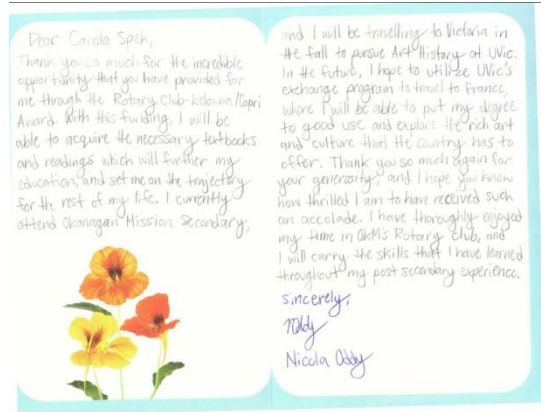 Dear Carola Spek,
Thank you so much for the incredible
opportunity that you have provided for
me through the Rotary Club-Kelowna/Capri
Award. With this funding, I will be
able to acquire the necessary textbooks
and readings which will further my
education, and set me on the trajectory
for the rest of my life. I currently
attend Okanagan Mission Secondary,
and I will be travelling to Victoria in
the fall to pursue Art History at UVic.
In the future, I hope to utilize UVic's
exchange program to travel to France,
where I will be able to put my degree
to good use and explore the rich art
and culture that the country has to
offer. Thank you so much again for
your generosity, and I hope you know
how thrilled I am to have received such
an accolade. I have thoroughly enjoyed
my time in OKM's Rotary Club, and
I will carry the skills that I have learned
throughout my post secondary experience.
Sincerely,
Nicola Oddy